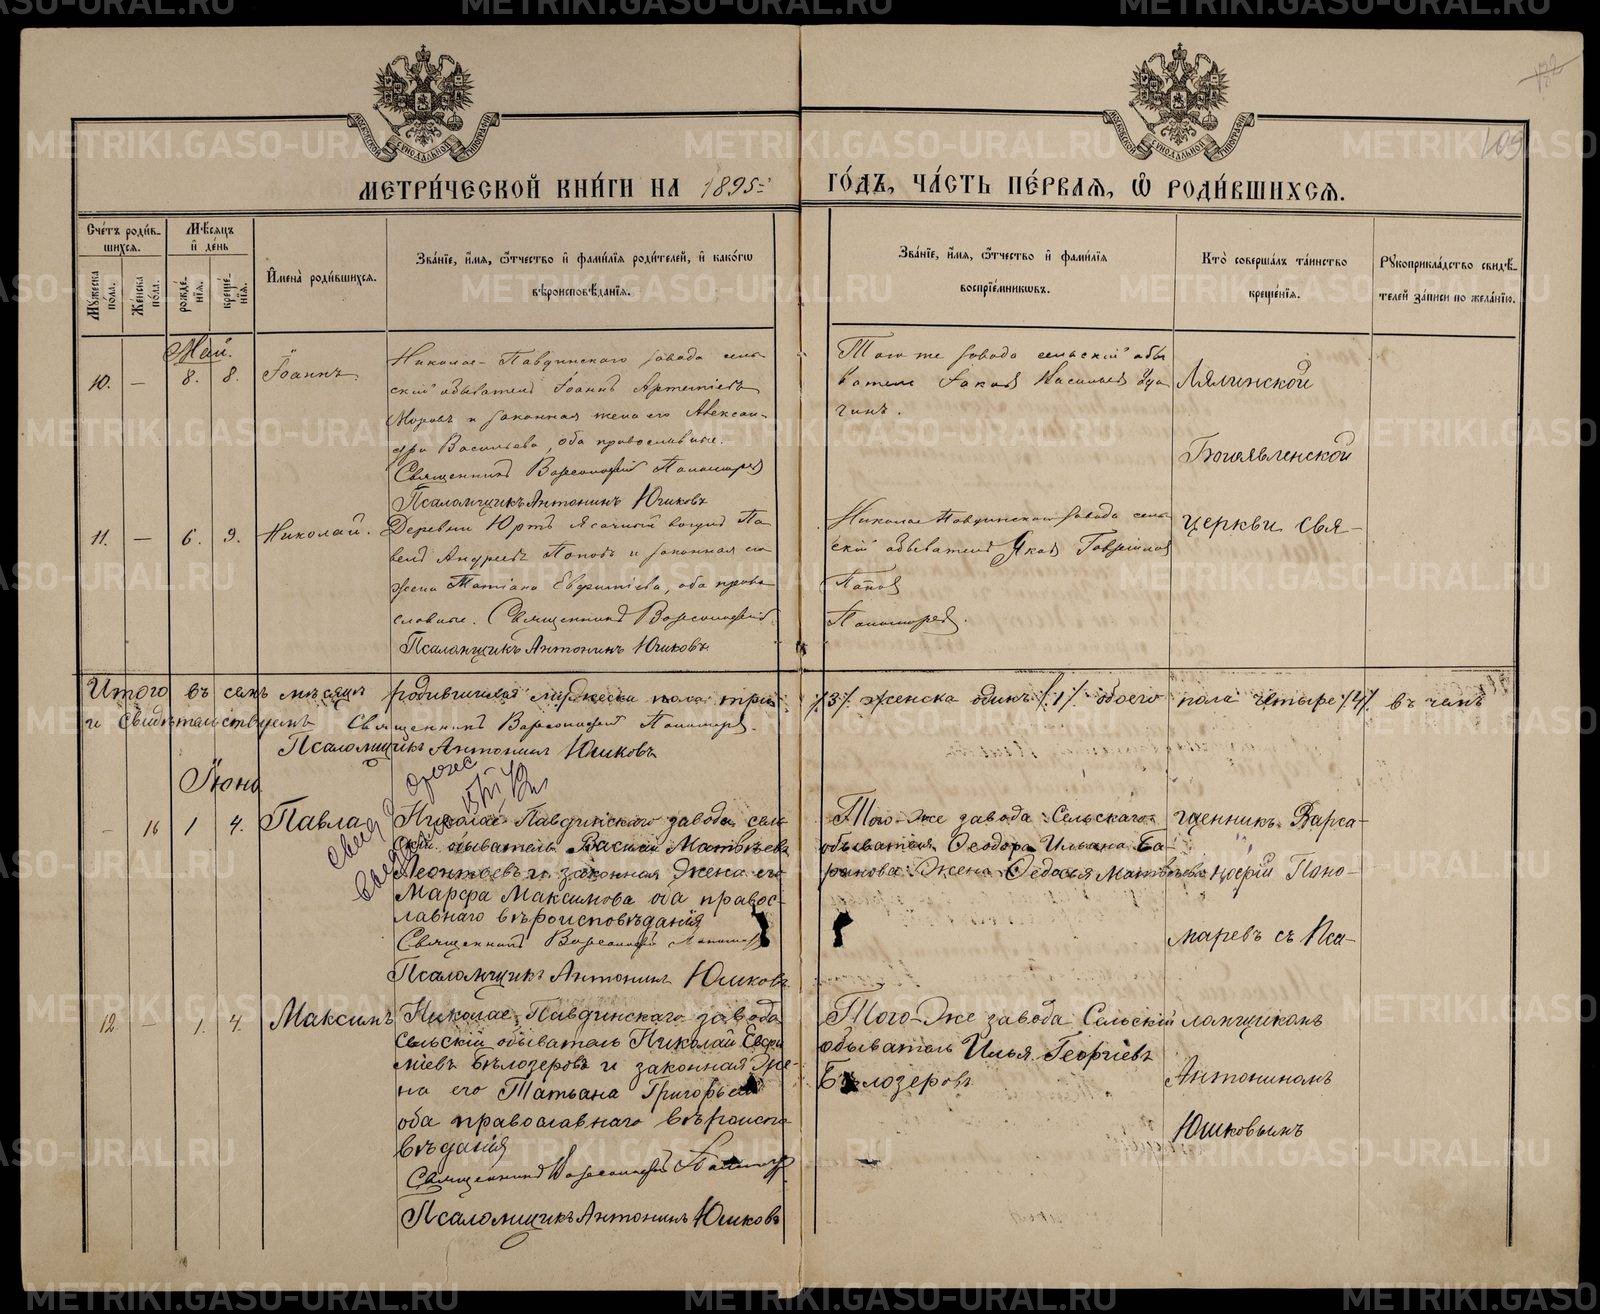 МЕТРИ́ЧЕСКОЙ КНИ́ГИ НА 1895
ГО́ДЪ, ЧА́СТЬ ПЕ́РВАЯ, Ѡ РОДИ́ВШИХСЯ.
105
Сче́тъ роди́вшихся.
Му́жеска по́ла.
Же́нска по́ла.
Мѣ́сяцъ и де́нь
рожде́нія.
креще́нія.
Имена̀ роди́вшихся.
Зва́ніе, и́мя, ѻ҆́тчество и фами́лія роди́телей, и како́гѡ вѣроисповѣ́данія.
Зва́ніе, и́мя, ѻ҆́тчество и фами́лія воспріе́мникѡвъ.
Кто̀ соверша́лъ та́инство креще́нія.
Рукоприкла́дство свидѣ́телей за́писи по жела́нію.
Май.
10. — 8. 8. Іоаннъ.
Николае-Павдинскаго завода сель
скій обыватель Іоаннъ Артеміевъ
и законная жена его Алексан-
дра Васильева, оба православные.
Священникъ Варсонофій Пономаревъ
Псаломщикъ Антонинъ Юшковъ
Того же завода сельскій обы
ватель Іаковъ Васильевъ
11. — 6. 9. Николай.
Деревни Юртъ Ясачный вогулъ Па
велъ Андреевъ Поповъ и законная его
жена Татіана Евфиміева, оба право
славные. Священникъ Варсонофій
Псаломщикъ Антонинъ Юшковъ
Николае Павдинскаго завода сель
скій обыватель Яковъ Гавріиловъ
Поповъ
Пономаревъ.
Итого въ семъ мѣсяцѣ родившихся мужеска пола три /3/ женска одинъ /1/ обоего пола четыре /4/ въ чемъ
и свидѣтельствуемъ Священникъ Варсонофій Пономаревъ.
Псаломщикъ Антонинъ Юшковъ
Іюнь
— 16 1 4. Павла
Николае-Павдинскаго завода сель
скій обыватель Василій Матвѣевъ
Леонтьевъ и законная жена его
Марѳа Максимова оба правос-
лавнаго вѣроисповѣданія
Священникъ Варсонофій Пономаревъ
Псаломщикъ Антонинъ Юшковъ
Того-Же завода Сельскаго
обывателя Ѳеодора Ильина Ба-
ранова Жена Ѳедосья Матвѣева
12 — 1. 4. Максимъ
Николае-Павдинскаго завода
сельскій обыватель Николай Евфи
міевъ Бѣлозеровъ и законная Же-
на его Татьана Григорьева
оба православнаго вѣроиспо
вѣданія
Священникъ Варсонофій Пономаревъ
Псаломщикъ Антонинъ Юшковъ
Того-Же завода Сельскій
обыватель Илья Георгіевъ
Бѣлозеровъ
Лялинской
Богоявленской
церкви свя-
щенникъ Варса-
нофій Поно-
маревъ съ Пса-
ломщикомъ
Антониномъ
Юшковымъ
METRIKI.GASO-URAL.RU